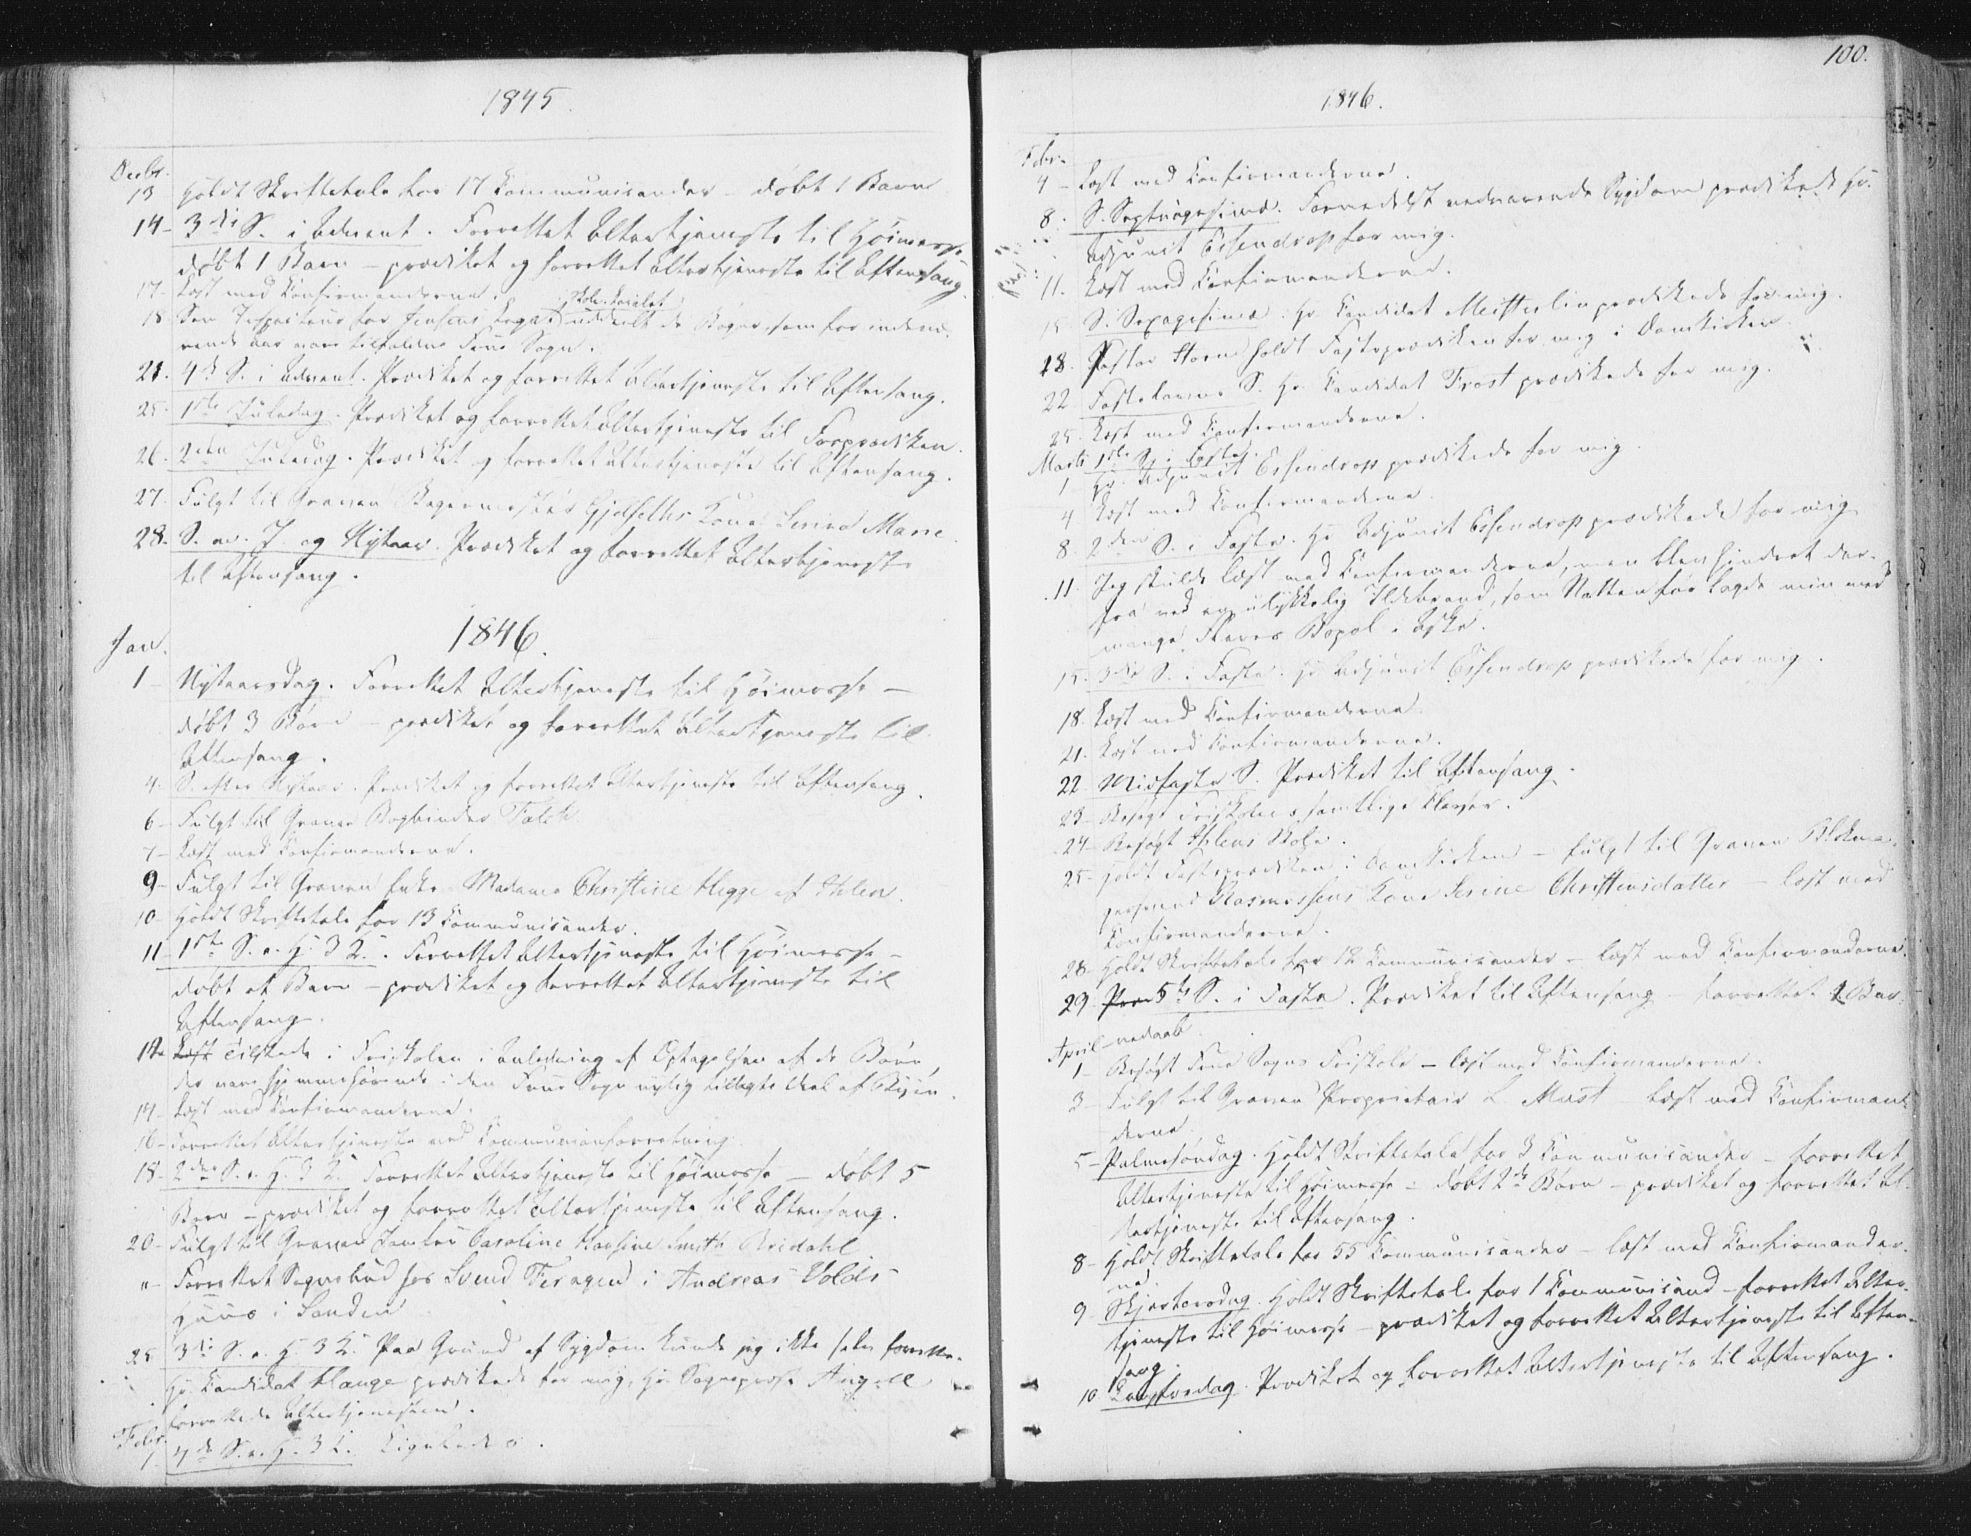 1845.
Decbr.
13 Holdt Skriftetale for 17 Communicander – døbt 1 Barn
14 – 3die S. i Advent. Forrettet Altertjeneste til Høimesse
døbt 1 Barn – prædiket og forrettet Altertjeneste til Aftensang.
17 – Læst med Confirmanderne.
Skole-Localet
18 Som Inspecteur for Jensens Legat uddeelt de Bøger, som for indevæ-
rende Aar vare tilfaldne Frue Sogn.
21. 4de S. i Advent. Prædiket og forrettet Altertjeneste til Aftensang.
25. 1ste Juledag. Prædiket og forrettet Altertjeneste til Froprædiken.
26. 2den Juledag. Prædiket og forrettet Altertjeneste til Aftensang.
27. Fulgt til Graven Bagermester Gjelseths Kone Marie.
28. S. m. J. og Nytaar. Prædiket og forrettet Altertjeneste
til Aftensang.
1846.
Jan.
1 – Nytaarsdag. Forrettet Altertjeneste til Høimesse –
døbt 3 Børn – prædiket og forrettet Altertjeneste til
Aftensang.
4. S. efter Nytaar. Prædiket og forrettet Altertjeneste til Aftensang.
6 – Fulgt til Graven Bogbinder Falch
7 – Læst med Confirmanderne.
9 – Fulgt til Graven Enke-Madame Christine Hegge af Ihlen.
10 – Holdt Skriftetale for 13 Communicander.
11 1ste S. e. H. 3 K. Forrettet Altertjeneste til Høimesse –
døbt et Barn – prædiket og forrettet Altertjeneste til
Aftensang.
12 Læst Tilstede i Friskolen i Anledning af Optagelsen af de Børn,
der vare hjemmehørende i den Frue Sogn nylig tillagte Deel af Byen.
14 – Læst med Confirmanderne.
16 – Forrettet Altertjeneste ved Communionforretning.
18 – 2den S. e. H. 3 K. Forrettet Altertjeneste til Høimesse – døbt 5
Børn – prædiket og forrettet Altertjeneste til Aftensang.
20 – Fulgt til Graven Jomfru Caroline Smith Bredahl
" – Forrettet Sognebud hos Svend i Andreas Volds
Huus i Sanden
25 3die S. e. H. 3 K. Paa Grund af Sygdom kunde jeg ikke selv forrette.
Hr. Candidat Hauge prædikede for mig, Hr. Sognepræst Angell
forrettede Altertjenesten.
Febr.
1. 4de S. e. H. 3 K. Ligeledes.
100.
1846.
Febr.
4 – Læst med Confirmanderne.
8. S. Septuagesima. Formedelst vedvarende Sygdom prædikede Hr.
Adjunct Essendrop for mig.
11. Læst med Confirmanderne.
15 S. Sexagesima. Hr. Candidat Meisterlin prædikede for mig.
18. Pastor Storm holdt Fasteprædiken for mig i Domkirken
22 Fastelavns S. Hr. Candidat Frost prædikede for mig.
25. Læst med Confirmanderne.
Marts 1ste S. i Faste.
1 – Hr. Adjunct Essendrop prædikede for mig.
4 Læst med Confirmanderne.
8. 2den S. i Faste. Hr. Adjunct Essendrop prædikede for mig
11. Jeg skulde læst med Confirmanderne, men blev hindret der-
fra ved en ulykkelig Ildebrand, som Natten før lagde min med
mange Fleres Bopæl i Aske.
15. 3die S. i Faste. Hr. Adjunct Essendrop prædikede for mig.
18. Læst med Confirmanderne.
21. Læst med Confirmanderne.
22. Midfaste S. Prædiket til Aftensang.
23 – Besøgt Friskolens samtlige Klasser.
24 – Besøgt Ihlens Skole.
25 – Holdt Fasteprædiken i Domkirken – fulgt til Graven
Rasmussens Kone Serine Christensdatter – læst med
Confirmanderne.
28 Holdt Skriftetale for 12 Communicander – læst med Confirmanderne.
29 5te S. i Faste. Prædiket til Aftensang – forrettet 1 Bar-
nedaab.
April
1 – Besøgt Frue Sogns Friskole – læst med Confirmanderne.
3 – Fulgt til Graven Proprietair L. Must – læst med Confirman-
derne.
5 – Palmesøndag. Holdt Skriftetale for 3 Communicander – forrettet
Altertjeneste til Høimesse – døbt 2de Børn – prædiket og forrettet Al-
tertjeneste til Aftensang.
8 – Holdt Skriftetale for 55 Communicander – læst med Confirmander-
ne.
9 – Skjertorsdag. Holdt Skriftetale for 1 Communicand – forrettet Alter-
tjeneste til Høimesse – prædiket og forrettet Altertjeneste til Aften-
sang.
10. Langfredag. Prædiket og forrettet Altertjeneste til Aftensang.